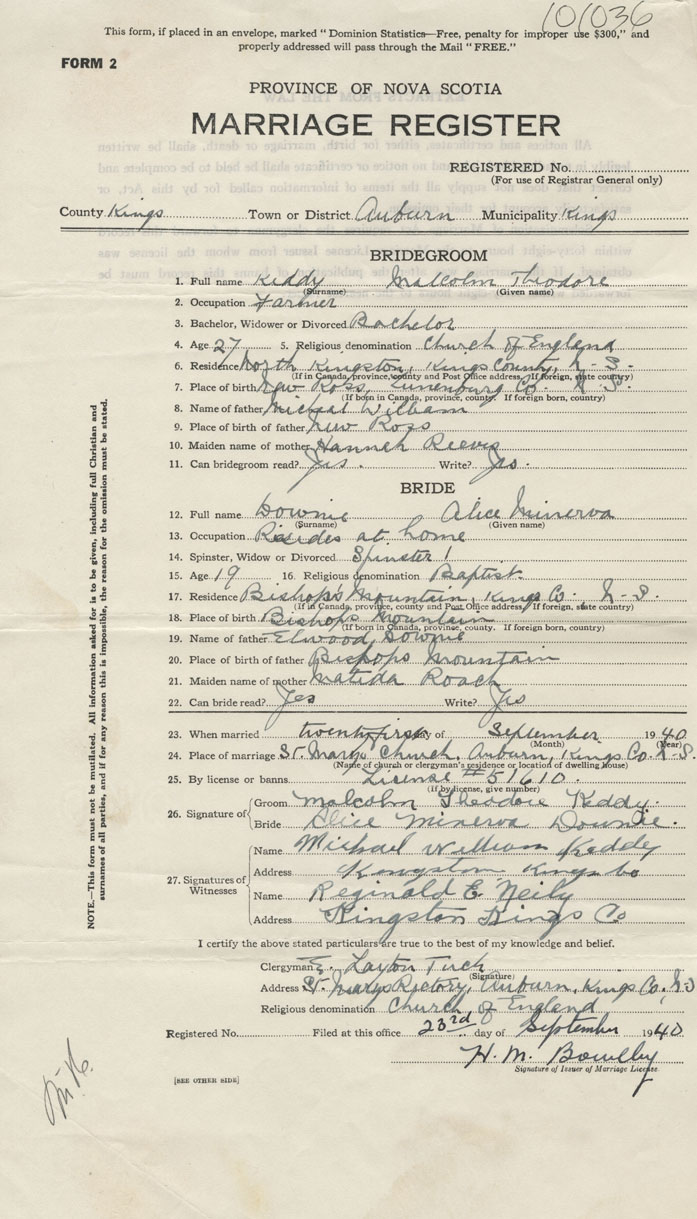 101036
This form, if placed in an envelope, marked "Dominion Statistics—Free, penalty for improper use $300," and
properly addressed will pass through the Mail "FREE."
FORM 2
PROVINCE OF NOVA SCOTIA
MARRIAGE REGISTER
REGISTERED No.
(For use of Registrar General only)
County Kings Town or District Auburn Municipality Kings
BRIDEGROOM
1. Full name Keddy Malcolm Theodore
(Surname) (Given name)
2. Occupation Farmer
3. Bachelor, Widower or Divorced Bachelor
4. Age 27 5. Religious denomination Church of England
6. Residence North Kingston, Kings County, N-S.
(If in Canada, province, county and Post Office address, If foreign, state country)
7. Place of birth New Ross, Lunenburg Co N. S.
(If born in Canada, province, county. If foreign born, country)
8. Name of father Micheal William
9. Place of birth of father New Ross
10. Maiden name of mother Hannah Reeves
11. Can bridegroom read? Yes. Write? Yes.
BRIDE
12. Full name Downie Alice Minerva
(Surname) (Given name)
13. Occupation Resides at home
14. Spinster, Widow or Divorced Spinster
15. Age 19 16. Religious denomination Baptist.
17. Residence Bishop's Mountain, Kings Co. N-S.
(If in Canada, province, county and Post Office address, If foreign, state country)
18. Place of birth Bishops Mountain
(If born in Canada, province, county. If foreign born, country)
19. Name of father Elwood Downie
20. Place of birth of father Bishops Mountain
21. Maiden name of mother Matilda Roach
22. Can bride read? Yes Write? Yes
23. When married twenty first day of September 1940
(Month) (Year)
24. Place of marriage St. Marys Church, Auburn, Kings Co. N-S.
(Name of church or clergyman's residence or location of dwelling house)
25. By license or banns. License #51610.
(If by license, give number)
26. Signature of Groom Malcolm Theodore Keddy.
Bride Alice Minerva Downie.
27. Signatures of Witnesses
Name Michael William Keddy
Address Kingston Kings Co
Name Reginald E. Neily
Address Kingston Kings Co
I certify the above stated particulars are true to the best of my knowledge and belief.
Clergyman E. Layton Tuck
(Signature)
Address St. Marys Rectory, Auburn, Kings Co., N.S
Religious denomination Church of England
Registered No. Filed at this office 23rd day of September 1940
H. M. Bowlby
Signature of Issuer of Marriage License
[SEE OTHER SIDE]
NOTE.—This form must not be mutilated. All information asked for is to be given, including full Christian and
surnames of all parties, and if for any reason this is impossible, the reason for the omission must be stated.